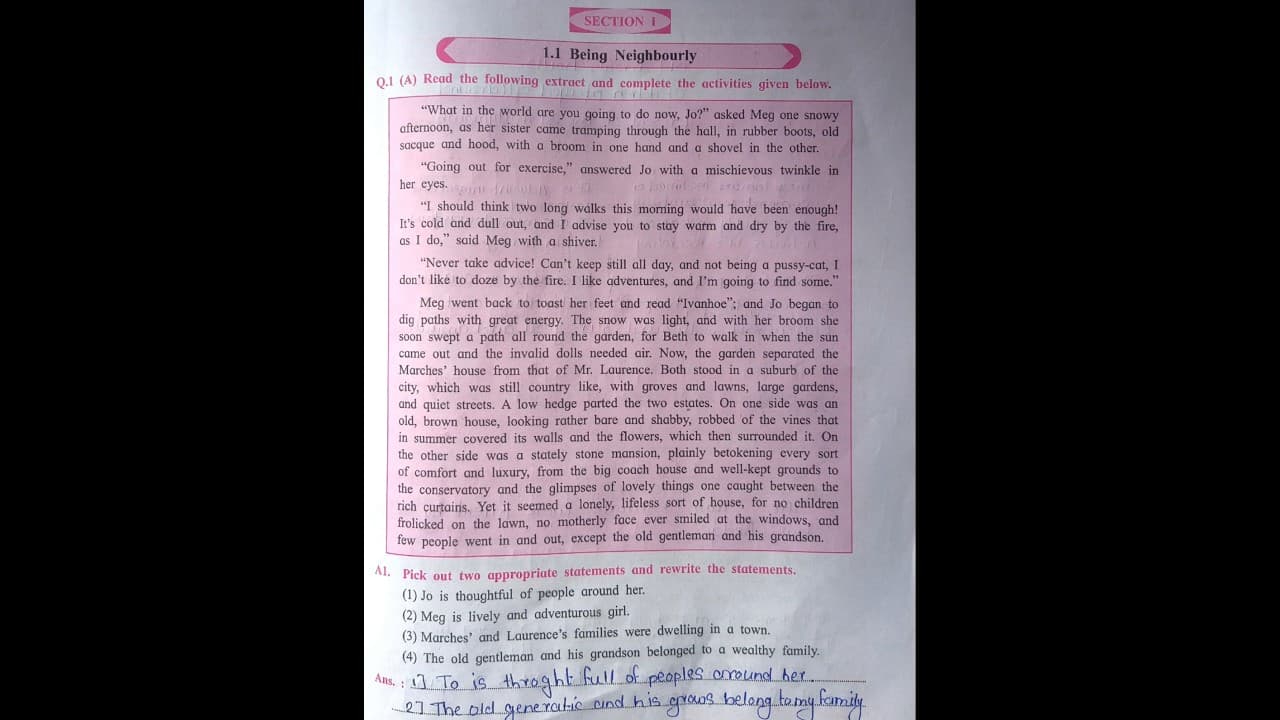 SECTION I
1.1 Being Neighbourly
Q.1 (A) Read the following extract and complete the activities given below.
“What in the world are you going to do now, Jo?” asked Meg one snowy
afternoon, as her sister came tramping through the hall, in rubber boots, old
sacque and hood, with a broom in one hand and a shovel in the other.
“Going out for exercise,” answered Jo with a mischievous twinkle in
her eyes.
“I should think two long walks this morning would have been enough!
It’s cold and dull out, and I advise you to stay warm and dry by the fire,
as I do,” said Meg with a shiver.
“Never take advice! Can’t keep still all day, and not being a pussy-cat, I
don’t like to doze by the fire. I like adventures, and I’m going to find some.”
Meg went back to toast her feet and read “Ivanhoe”; and Jo began to
dig paths with great energy. The snow was light, and with her broom she
soon swept a path all round the garden, for Beth to walk in when the sun
came out and the invalid dolls needed air. Now, the garden separated the
Marches’ house from that of Mr. Laurence. Both stood in a suburb of the
city, which was still country like, with groves and lawns, large gardens,
and quiet streets. A low hedge parted the two estates. On one side was an
old, brown house, looking rather bare and shabby, robbed of the vines that
in summer covered its walls and the flowers, which then surrounded it. On
the other side was a stately stone mansion, plainly betokening every sort
of comfort and luxury, from the big coach house and well-kept grounds to
the conservatory and the glimpses of lovely things one caught between the
rich curtains. Yet it seemed a lonely, lifeless sort of house, for no children
frolicked on the lawn, no motherly face ever smiled at the windows, and
few people went in and out, except the old gentleman and his grandson.
A1. Pick out two appropriate statements and rewrite the statements.
(1) Jo is thoughtful of people around her.
(2) Meg is lively and adventurous girl.
(3) Marches’ and Laurence’s families were dwelling in a town.
(4) The old gentleman and his grandson belonged to a wealthy family.
Ans. : 1] To is throght full of peoples arround her.
2] The old and his belong to my family